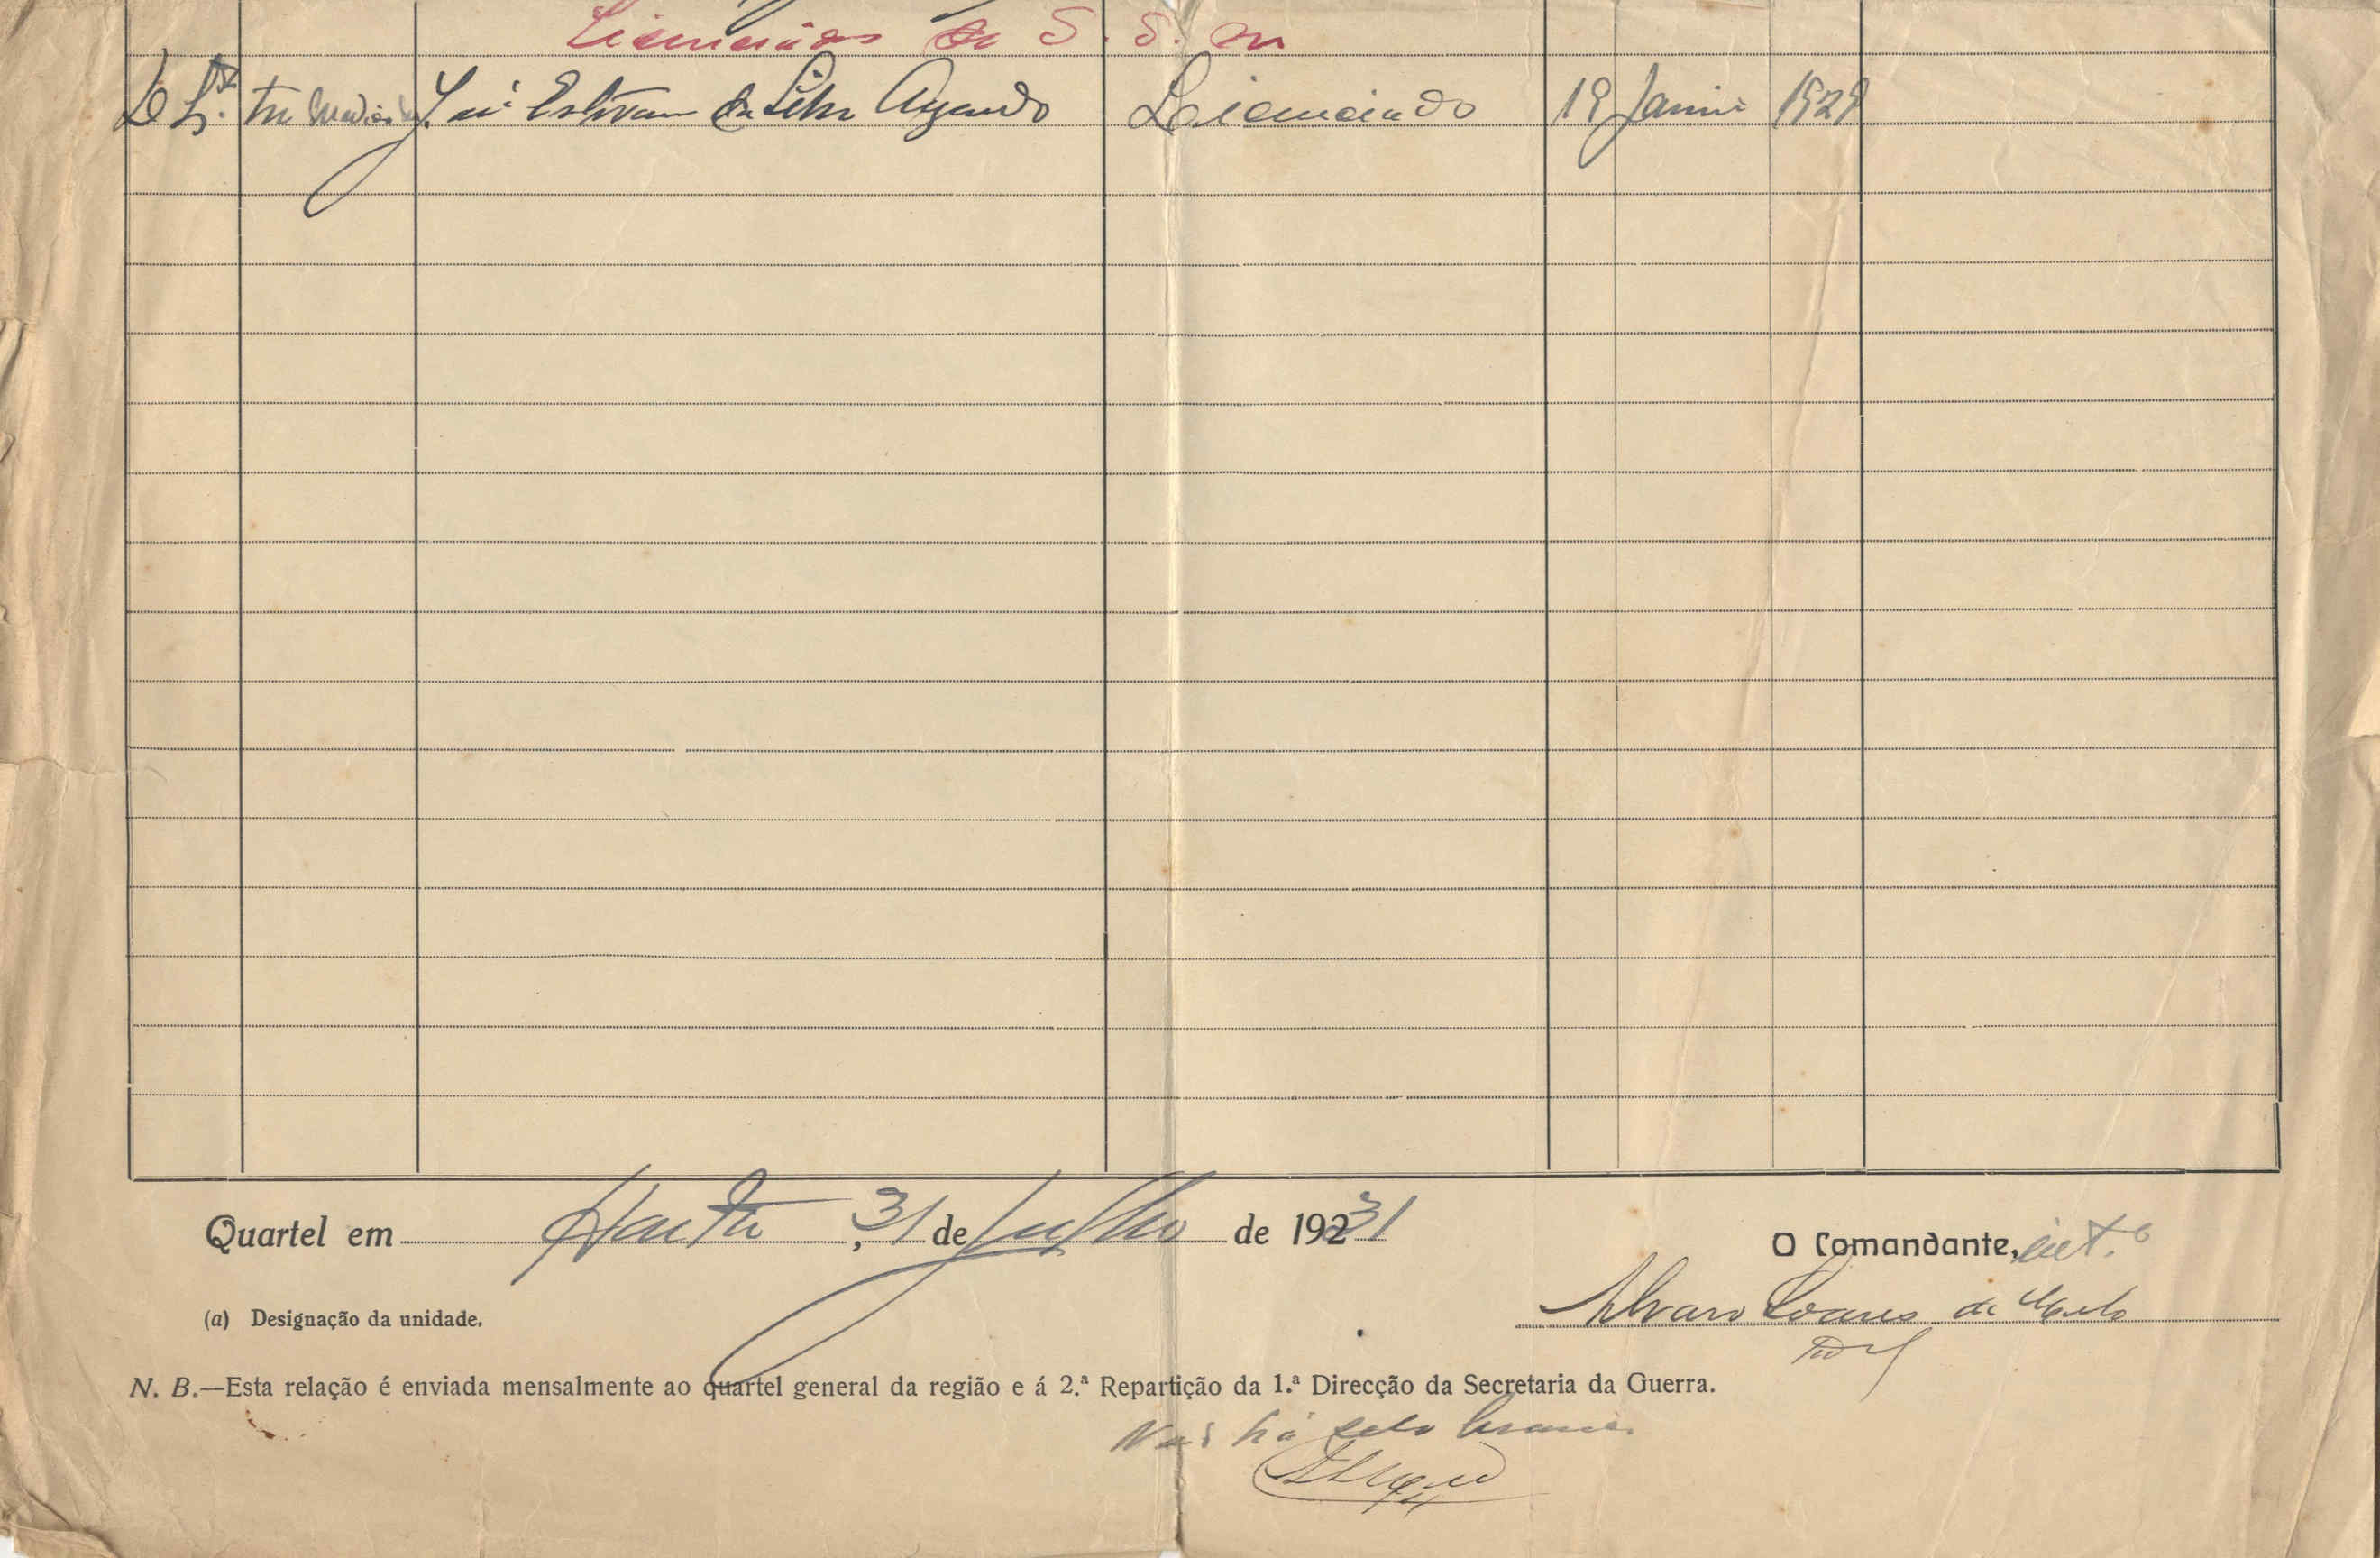 Licenciados de S. S. em
José Estevam da Silva Azevedo Licenciado 19 Junho 1929
Quartel em Horta, 31 de Julho de 19231
O Comandante, int.º
Alvaro Soares de Melo
(a) Designação da unidade.
N. B.—Esta relação é enviada mensalmente ao quartel general da região e á 2.ª Repartição da 1.ª Direcção da Secretaria da Guerra.
Não há selo branco